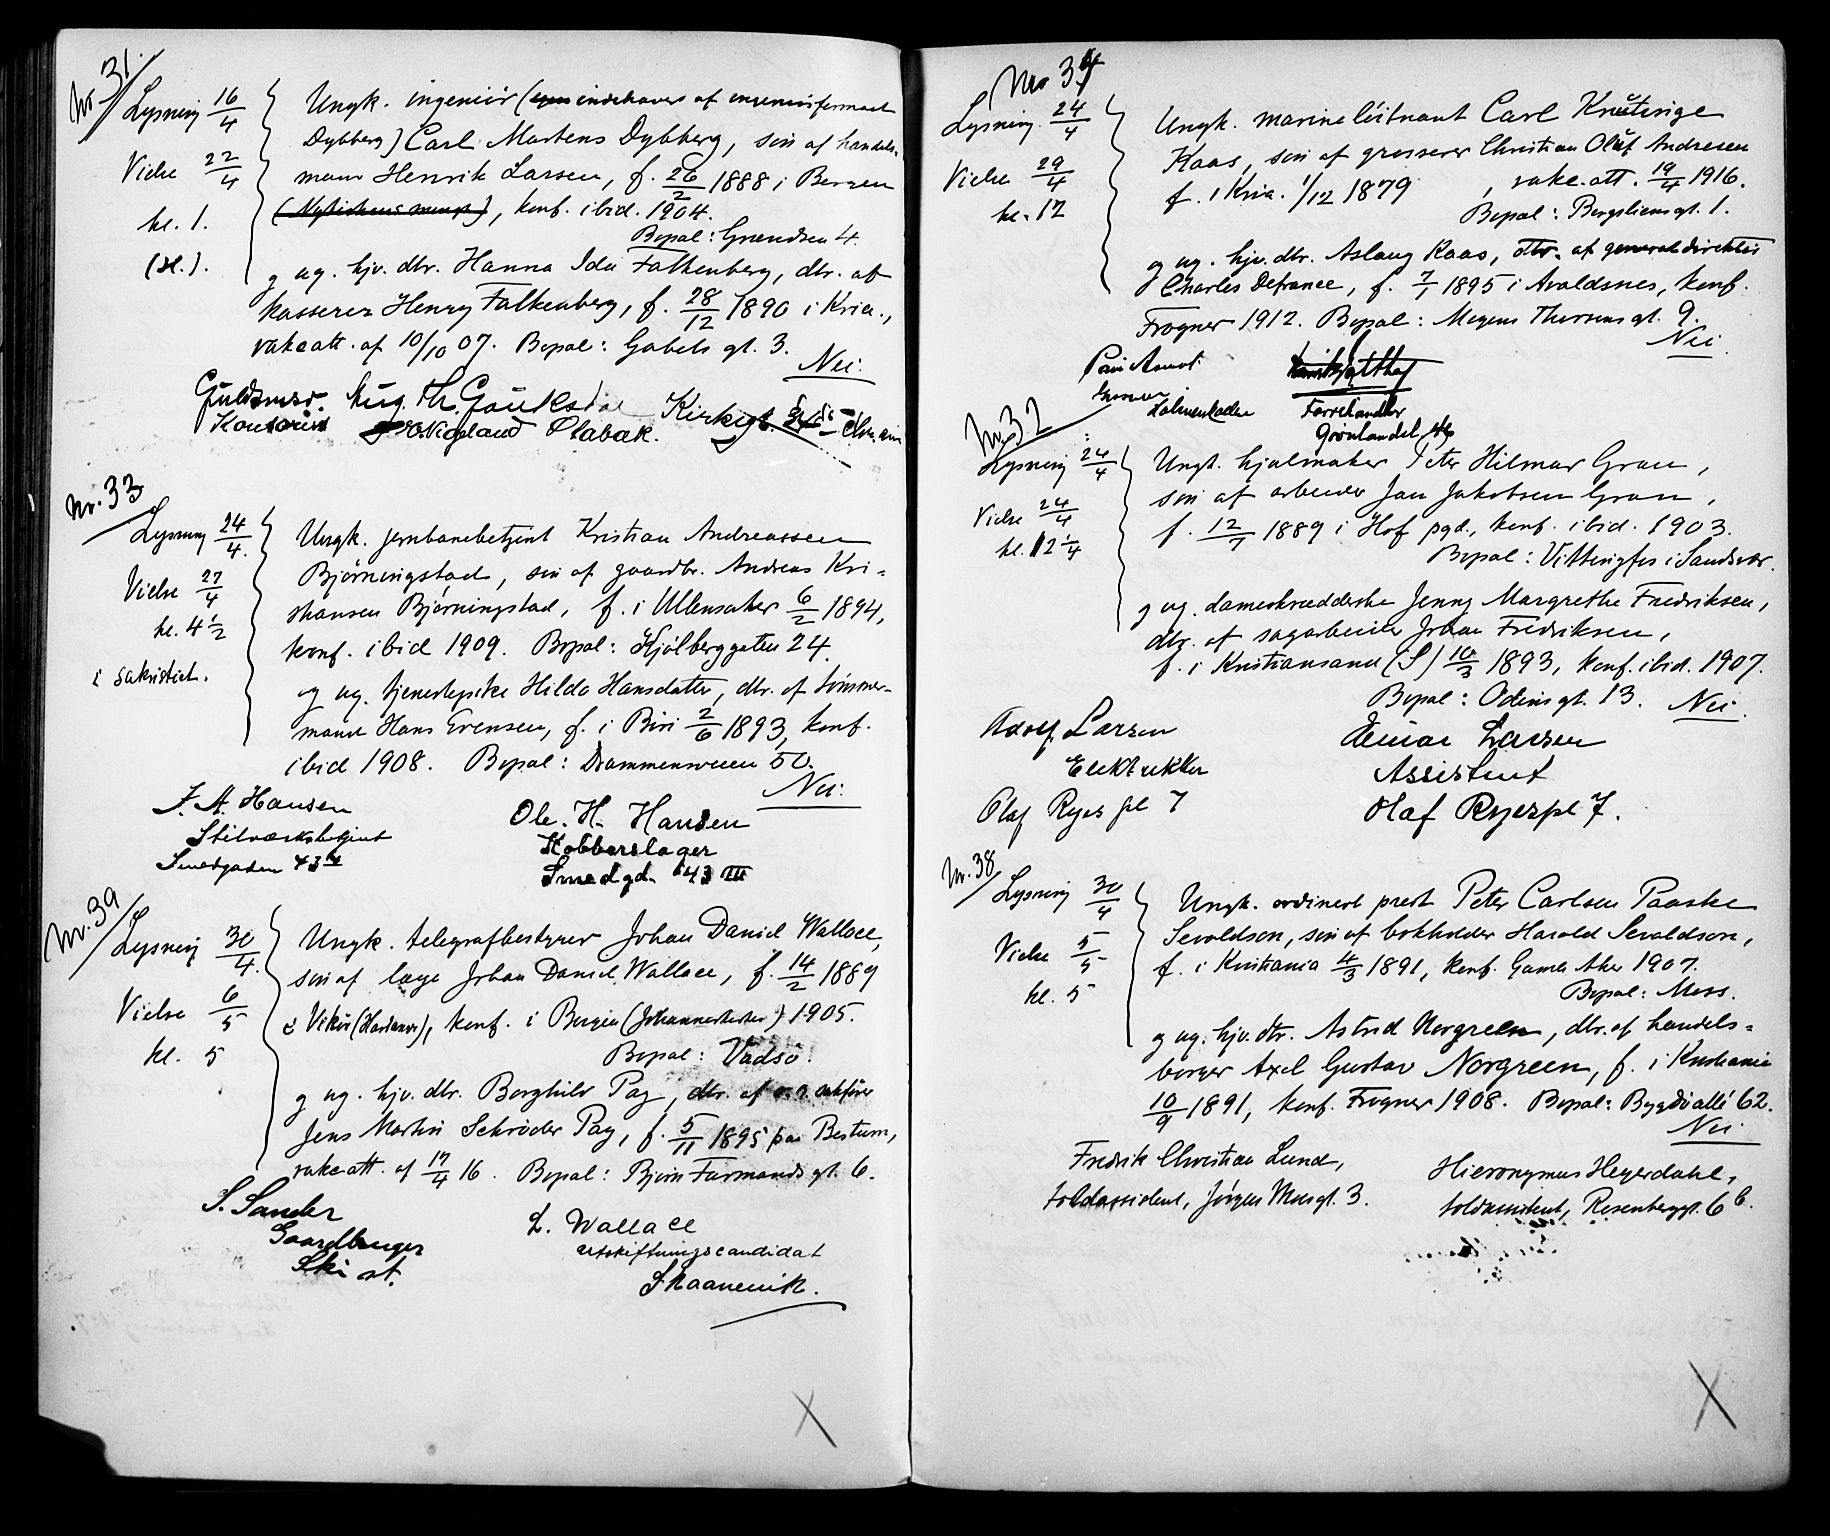 Nr. 31.
Lysning 16/4
Vielse 22/4
kl. 1.
Ungk. ingeniør (indehaver af ingeniørfirmaet
Dybberg) Carl Martens Dybberg, søn af handels-
mann Henrik Larsen, f. 26/2 1888 i Bergen
, konf. ibid. 1904.
Bopæl: Grændsen 4.
og ug. hjv. dtr. Hanna Ida Falkenberg, dtr. af
kasserer Henry Falkenberg, f. 28/12 1890 i Kria.,
vakc att. af 10/10 07. Bopæl: Gabels gt. 3.
Nei.
Aug. Th.
Kontorist
Nr. 33
Lysning 24/4.
Vielse 27/4
kl. 4 1/2
i sakristiet.
Ungk. jernbanebetjent Kristian Andreassen
Bjørningstad, søn af gaardbr. Andreas Kri-
stiansen Bjørningstad, f. i Ullensaker 6/2 1894,
konf. ibid 1909. Bopæl: Kjølberggaten 24.
og ug. tjenestepike Hilda Hansdatter, dtr. af tømmer-
mand Hans Evensen, f. i Biri 2/6 1893, konf.
ibid 1908. Bopæl: Drammensveien 50.
Nei.
F. A. Hansen
Ole. H. Hansen
Kobberslager
Smedgaden 43
Smedgd. 43 III
Nr. 39
Lysning 30/4.
Vielse 6/5
kl. 5
Ungk. telegrafbestyrer Johan Daniel Wallace,
søn af læge Johan Daniel Wallace, f. 14/2 1889
i Vikør (Hardanger), konf. i Bergen (Johanneskirken) 1905.
Bopæl: Vadsø.
og ug. hjv. dtr. Borghild Pay, dtr. af o.r. sakfører
Jens Martin Schrøder Pay, f. 5/11 1895 paa Bestum,
vakc att. af 17/4 16. Bopæl: Bjørn Farmands gt. 6.
S. Sander
Gaardbruger
Ski st.
L. Wallace
utskiftningscandidat
Skaanevik.
Nr. 34
Lysning 24/4
Vielse 29/4
kl. 12
Ungk. marineløitnant Carl Knutinge
Kaas, søn af grosserer Christian Oluf Andresen
f. i Kria. 1/12 1879, vakc. att. 19/4 1916.
Bopæl: Bergsliens gt. 1.
og ug. hjv. dtr. Aslaug Kaas, dtr. af generaldirektør
Charles Defrance, f. 7/1 1895 i Avaldsnes, konf.
Frogner 1912. Bopæl: Mogens Thorsens gt. 9.
Nei.
Nr. 32
Lysning 24/4
Vielse 24/4
kl. 12 1/4
Ungk. hjulmaker Peter Hilmar Gran,
søn af arbeider Jan Jakobsen Gran,
f. 12/7 1889 i Hof pgd., konf. ibid. 1903.
Bopæl: Vittingfos i Sandsvær.
og ug. dameskrædderske Jenny Margrethe Fredriksen,
dtr. af sagarbeider Johan Fredriksen,
f. i Kristiansand (S) 10/3 1893, konf. ibid. 1907.
Bopæl: Odins gt. 13. Nei.
Adolf Larsen
Elektrikker
Olaf Ryes pl 7
Einar Larsen
Assistent
Olaf Ryes pl 7.
Nr. 38
Lysning 30/4
Vielse 5/5
kl. 5
Ungk. ordinert prest Peter Carlsen Paaske
Sevaldson, søn af bokholder Harald Sevaldson,
f. i Kristiania 4/3 1891, konf. Gamle Aker 1907.
Bopæl: Moss.
og ug. hjv. dtr. Astrid Norgreen, dtr. af handels-
borger Axel Gustav Norgreen, f. i Kristiania
10/9 1891, konf. Frogner 1908. Bopæl: Bygdø allé 62.
Nei.
Fredrik Christian Lund,
toldassistent, Jørgen Moesgt. 3.
Hieronymus Heyerdahl,
toldassistent, Rosenborggt. 6 b.